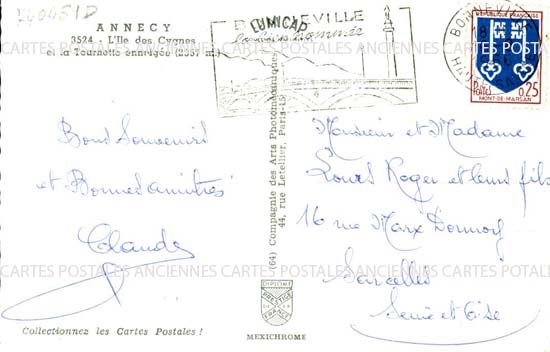 740451D
ANNECY
3524 - L'Ile des Cygnes
et la Tournette enneigée (2357 m.)
BONNEVILLE
LUMICAP
BONNEVILLE
18
HAUTE
REPUBLIQUE FRANÇAISE
POSTES
0,25
MONT-DE-MARSAN
Bons Souvenirs
et Bonnes amitiés
Claude
(64) Compagnie des Arts Photomécaniques
44, rue Letellier, Paris-15e
Monsieur et Madame
Louis Roger et leurs fils
16 rue Marx Dormoy
Sarcelles
Seine et Oise
CARTES POSTALES ANCIENNES CARTES POSTALES ANCIENNES CARTES POSTALES ANCIENNES
DIPLOME
PRESTIGE
FRANCE
MEXICHROME
Collectionnez les Cartes Postales !